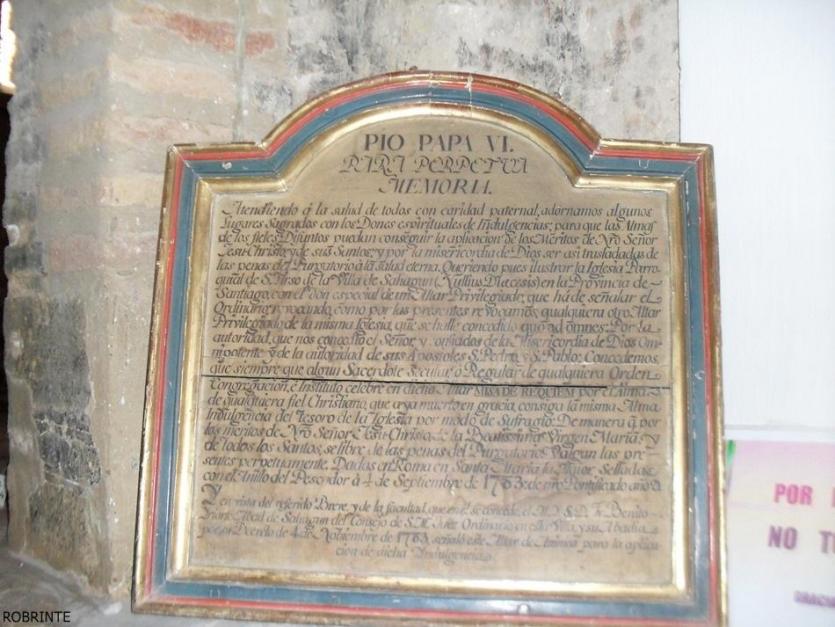 PIO PAPA VI.
PARA PERPETUA
MEMORIA.
Atendiendo q̃ la salud de todos con caridad paternal, adornamos algunos
Lugares Sagrados con los Dones espirituales de Indulgencias; para que las Almas
de los fieles Difuntos puedan conseguir la aplicacion de los Meritos de Nr̃o Señor
Jesu-Christo, y de sus Santos, y por la misericordia de Dios ser asi trasladadas de
las penas del Purgatorio à la salud eterna. Queriendo pues ilustrar la Iglesia Parro
quial de S. Tirso de la Villa de Sahagun (Nullius Diœcesis) en la Provincia de
Santiago, con el don especial de un Altar Privilegiado, que há de señalar el
Ordinario revocando, como por las presentes revocamos, qualquiera otro Altar
Privilegiado de la misma Iglesia, que se halle concedido quo ad omnes: Por la
autoridad, que nos concedió el Señor, y confiados de la Misericordia de Dios Om-
nipotente y de la autoridad de sus Apostoles S. Pedro, y S. Pablo: Concedemos,
que siempre que algun Sacerdote Secular, o Regular de qualquiera Orden
Congregacion, è Instituto celebre en dicho Altar MISA DE REQUIEM por el Alma
de qualquiera fiel Christiano, que aya muerto en gracia, consiga la misma Alma
Indulgencia del Tesoro de la Iglesia por modo de Sufragio: De manera q̃ por
los meritos de Nr̃o Señor Jesu-Christo, de la Beatissima Virgen Maria, y
de todos los Santos, se libre de las penas del Purgatorio. Valgan las pre-
sentes perpetuamente. Dadas en Roma en Santa Maria la Mayor, Selladas
con el Anillo del Pescador à 4 de Septiembre de 1783. de nr̃o Pontificado año
Y en vista del referido Breve, y de la facultad que en el se concede, el M. Fr. Benito
Abad de Sahagun del Consejo de S. M. Juez Ordinario en esta Villa, y su Abadia
por su Decreto de 4 de Nobiembre de 1783, señaló este Altar de Animas para la aplica-
cion de dicha Indulgencia.
POR
NO
ROBRINTE